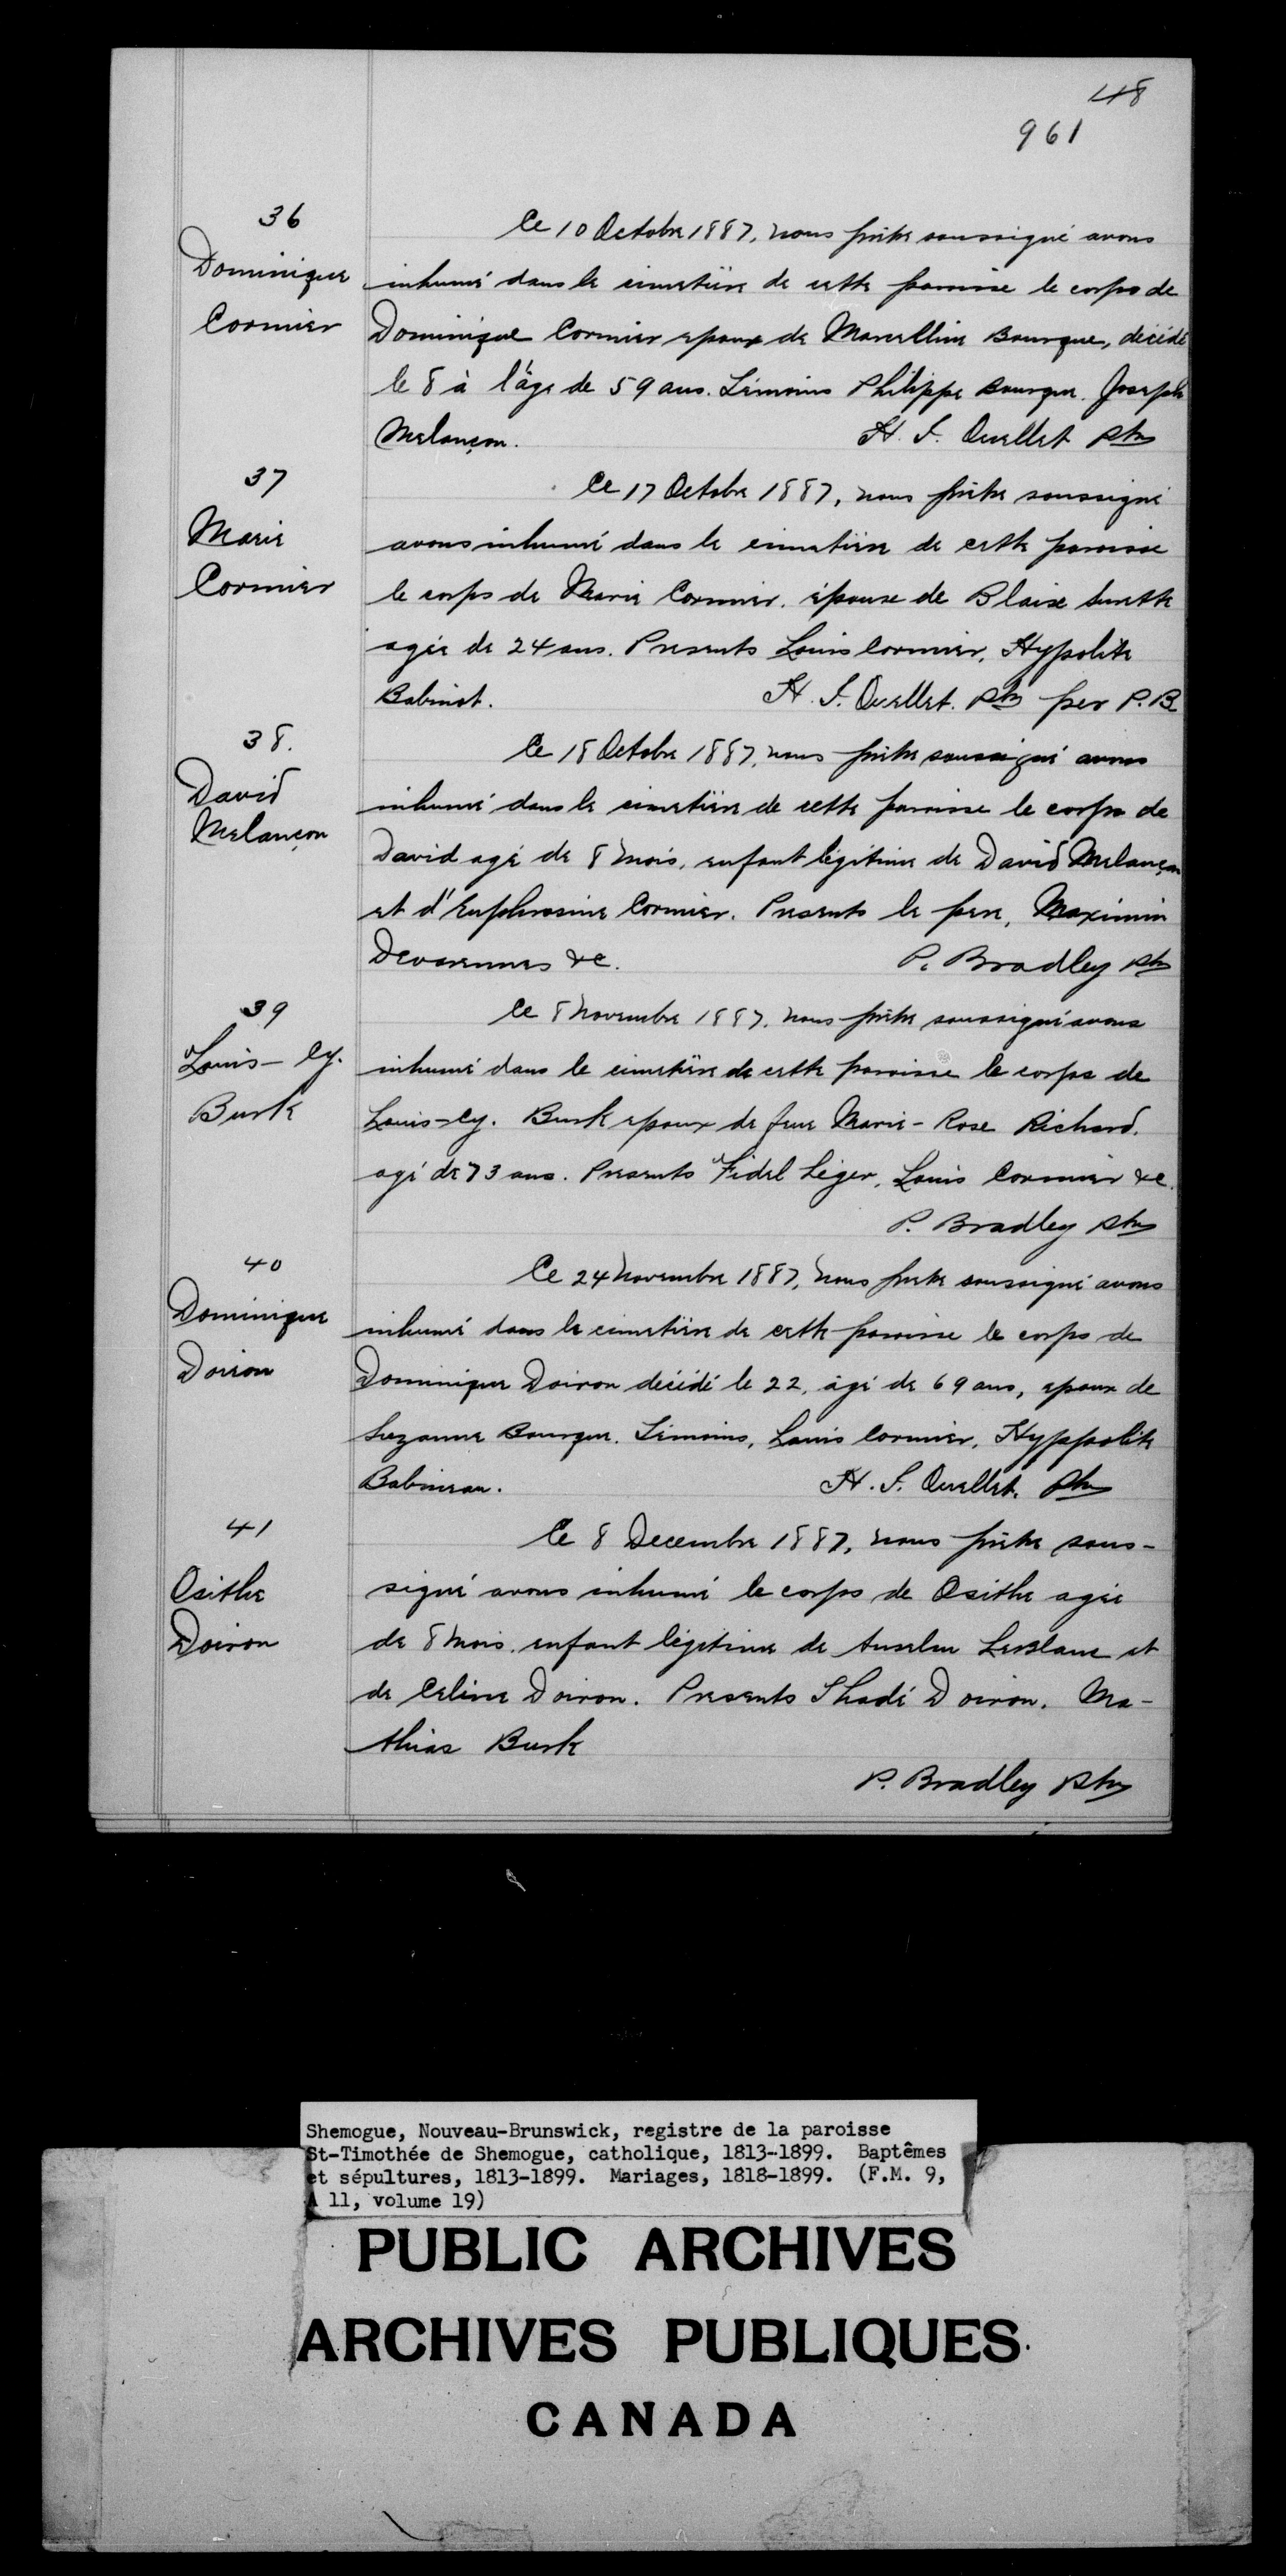 48
961
36
Dominique
Cormier
Ce 10 Octobre 1887, nous prêtre soussigné avons
inhumé dans le cimetière de cette paroisse le corps de
Dominique Cormier epoux de Marcelline Bourque, décédé
le 8 à l'âge de 59 ans. Témoins Philippe Bourque. Joseph
Melançon. H. T. Ouellet Ptre
37
Marie
Cormier
Ce 17 Octobre 1887, nous prêtre soussigné
avons inhumé dans le cimetière de cette paroisse
le corps de Marie Cormier. épouse de Blaise Surette
agée de 24 ans. Presents Louis Cormier, Hypolite
Babinot. H. T. Ouellet. Ptre per P. B
38.
David
Melançon
Ce 18 Octobre 1887, nous prêtre soussigné avons
inhumé dans le cimetière de cette paroisse le corps de
David agé de 8 mois, enfant légitime de David Melançon
et d'Euphrosine Cormier. Presents le pere, Maximin
Devarennes &c. P. Bradley Ptre
39
Louis-Cy.
Burk
Ce 8 Novembre 1887, nous prêtre soussigné avons
inhumé dans le cimetière de cette paroisse le corps de
Louis-Cy. Burk epoux de feue Marie-Rose Richard.
agé de 73 ans. Presents Fidel Léger, Louis Cormier &c.
P. Bradley Ptre
40
Dominique
Doiron
Ce 24 Novembre 1887, nous prêtre soussigné avons
inhumé dans le cimetière de cette paroisse le corps de
Dominique Doiron décédé le 22, âgé de 69 ans, epoux de
Suzanne Bourque. Témoins, Louis Cormier, Hyppolite
Babineau. H. T. Ouellet. Ptre
41
Osithe
Doiron
Ce 8 Decembre 1887, nous prêtre sous-
signé avons inhumé le corps de Osithe agée
de 8 mois. enfant légitime de Anselme LeBlanc et
de Celine Doiron. Presents Thadé Doiron. Ma-
thias Burk
P. Bradley Ptre
Shemogue, Nouveau-Brunswick, registre de la paroisse
St-Timothée de Shemogue, catholique, 1813-1899. Baptêmes
et sépultures, 1813-1899. Mariages, 1818-1899. (F.M. 9,
A 11, volume 19)
PUBLIC ARCHIVES
ARCHIVES PUBLIQUES
CANADA